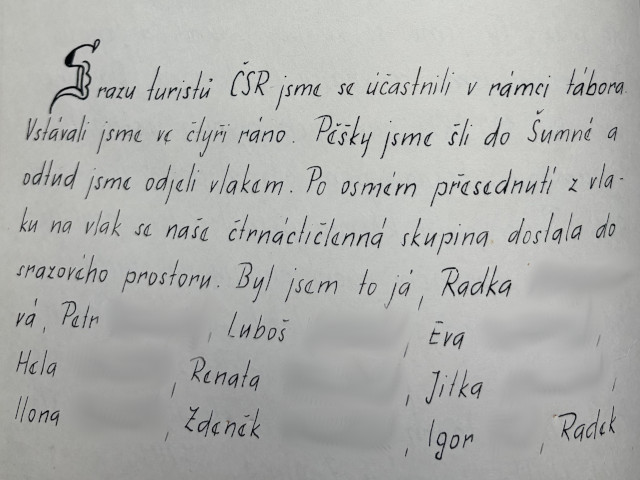 Srazu turistů ČSR jsme se účastnili v rámci tábora.
Vstávali jsme ve čtyři ráno. Pěšky jsme šli do Šumné a
odtud jsme odjeli vlakem. Po osmém přesednutí z vla-
ku na vlak se naše čtrnáctičlenná skupina dostala do
srazového prostoru. Byl jsem to já, Radka
vá, Petr , Luboš , Eva ,
Hela , Renata , Jitka ,
Ilona , Zdeněk , Igor , Radek